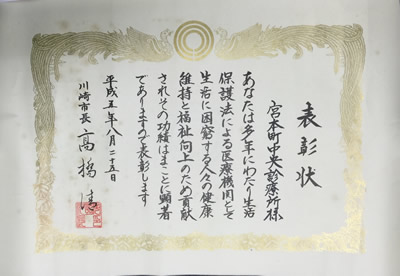 表彰状
宮本町中央診療所様
あなたは多年にわたり生活
保護法による医療機関として
生活に困窮する人々の健康
維持と福祉向上のため貢献
されその功績はまことに顕著
でありますので表彰します
平成五年八月二十五日
川崎市長 高橋清